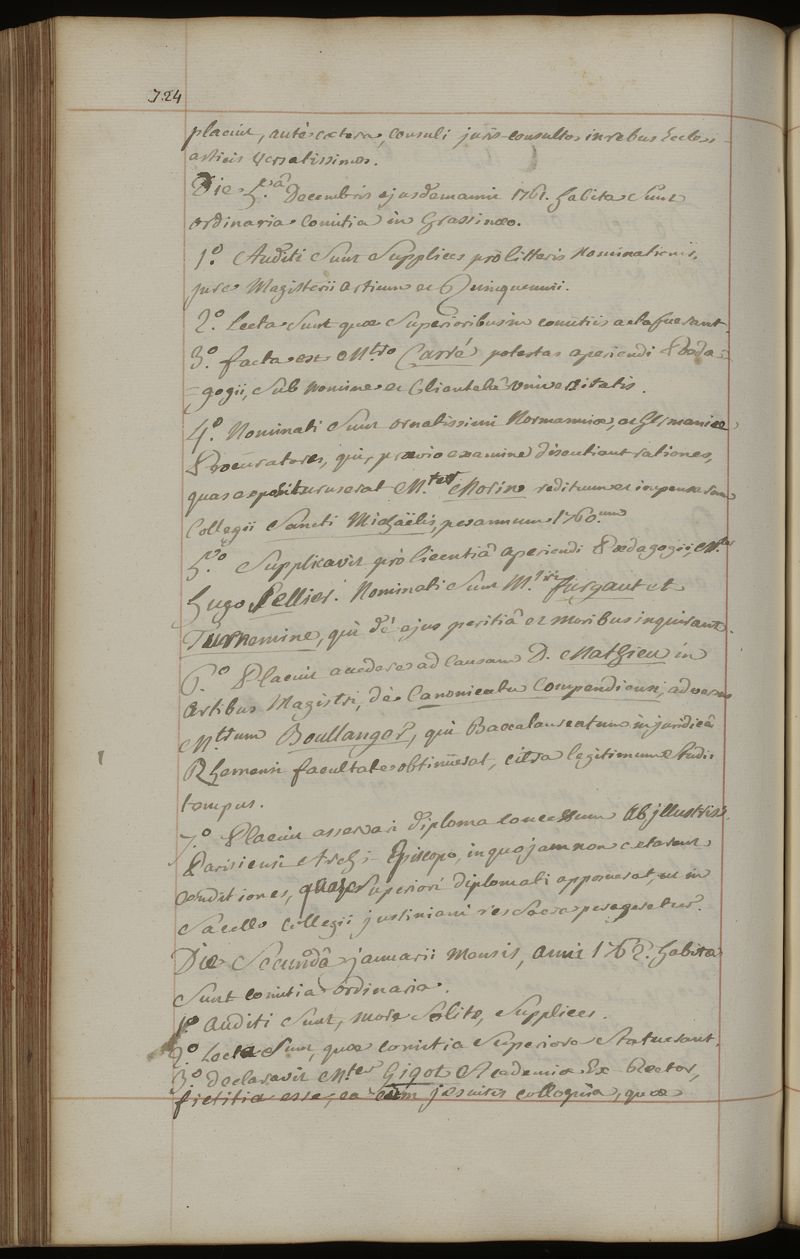 724
placuit, antè cætera, consuli juris consultos in rebus Eccles-
asticis versatissimos.
Die 5.â Decembris ejusdem anni 1761. habita sunt
ordinaria Comitia in Grassinæo.
1.º Auditi sunt supplices prò litteris nominationis,
jure Magisterii artium et Quinquennii.
2.º Lecta sunt quæ superioribus in comitiis acta fuerant.
3.º facta est M.tro Carré potestas aperiendi Pæda-
=gogii, sub nomine et Clientelâ Universitatis.
4.º Nominati sunt ornatissimi Normanniæ, et Germaniæ
Procuratores, qui, prævio examine discutiant rationes,
quas expositurus erat M.ter Morin redituum et impensarum
Collegii Sancti Michaëlis, per annum 1760.um
5.º Supplicavit prò licentiâ aperiendi Pædagogii, M.ter
Hugo Pellier. Nominati sunt M.tri Jurgaut et
Turnemine, qui dè ejus peritiâ et moribus inquirant.
6.º Placuit accedere ad causam D. Mathieu in
Artibus Magistri, dè Canonicatu Compendiensi, adversus
M.trum Boullanger, qui Baccalaureatum in juridicâ
Rhemensi facultate obtinuerat, citra legitimum studii
tempus.
7.º Placuit asservari diploma concessum ab illustriss.
Parisiensi Archi-Episcopo, in quo jam non extarent
conditiones, quas superiori diplomati apposuerat, ut in
Sacello Collegii justiniani res Sacræ peragerentur.
Die Secundâ januarii mensis, anni 1762. habita
sunt comitia ordinaria.
1.º Auditi sunt, more solito, supplices.
2.º Lecta sunt, quæ comitia superiora statuerant.
3.º declaravit M.ter Gigot Academiæ Ex-Rector,
fictitia esse, ea cum jesuitis colloquia, quæ